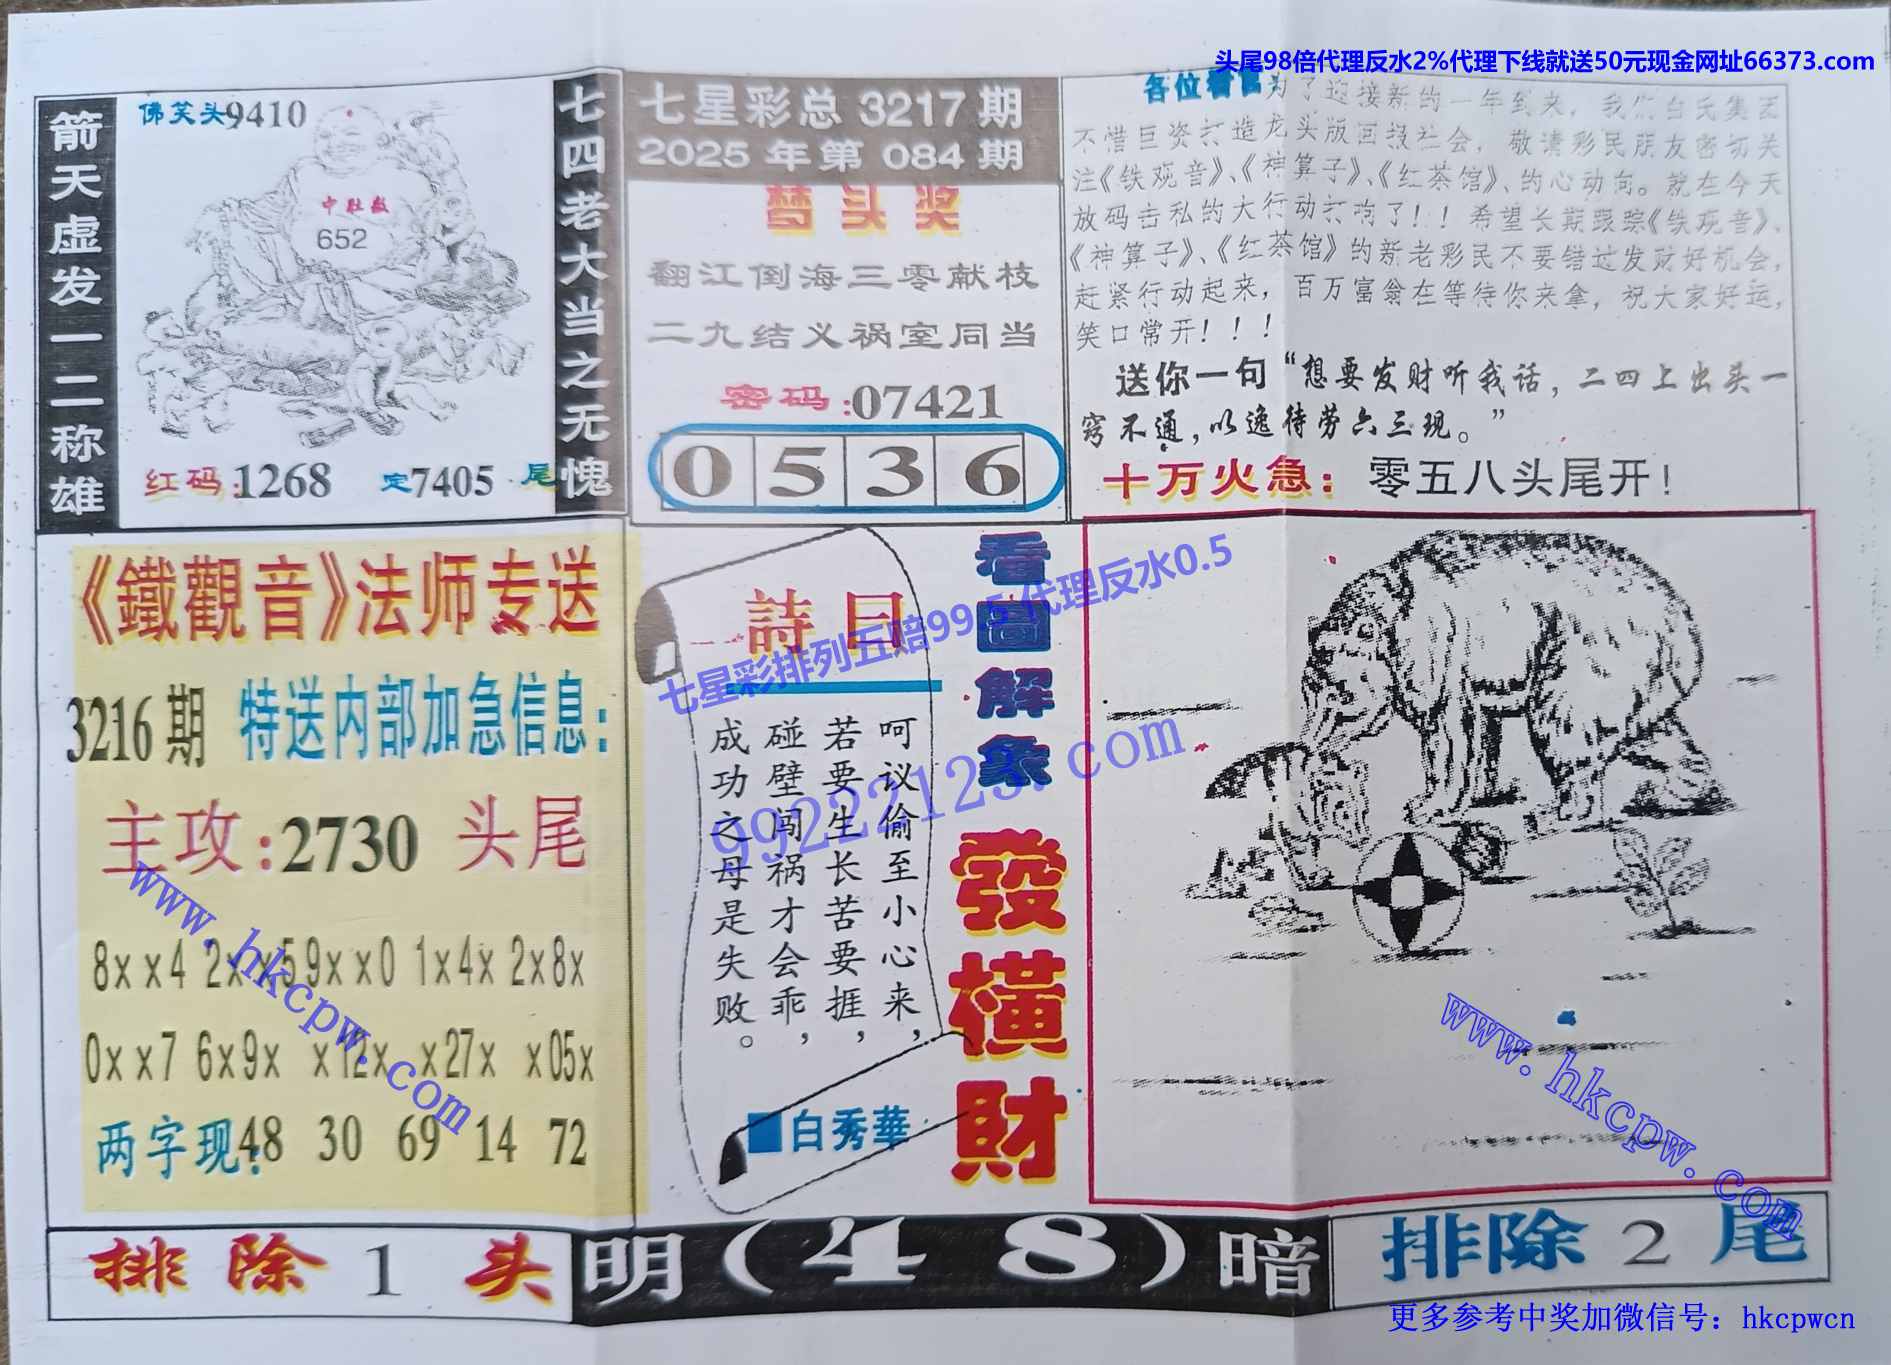 头尾98倍代理反水2%代理下线就送50元现金网址66373.com
箭天虚发一二称雄
佛笑头9410
中肚数
652
红码:1268 定7405 尾
七四老大当之无愧
七星彩总 3217 期
2025 年第 084 期
梦头奖
翻江倒海三零献枝
二九结义祸室同当
密码:07421
0 5 3 6
各位看官为了迎接新的一年到来，我们白氏集团
不惜巨资打造龙头版回报社会，敬请彩民朋友密切关
注《铁观音》、《神算子》、《红茶馆》、的心动向。就在今天
放码击私的大行动打响了！！希望长期跟踪《铁观音》、
《神算子》、《红茶馆》的新老彩民不要错过发财好机会，
赶紧行动起来，百万富翁在等待你来拿，祝大家好运，
笑口常开！！！
送你一句“想要发财听我话，二四上出头一
窍不通，以逸待劳六三现。”
十万火急：零五八头尾开！
《鐵觀音》法师专送
3216 期 特送内部加急信息：
主攻:2730 头尾
8xx4 2xx5 9xx0 1x4x 2x8x
0xx7 6x9x x12x x27x x05x
两字现:48 30 69 14 72
詩目
呵议偷至小心来，
若要生长苦要捱，
碰壁闯祸才会乖，
成功之母是失败。
白秀華
看圖解象
發橫財
七星彩排列五赔99.5 代理反水0.5
99222123.com
www.hkcpw.com
www.hkcpw.com
排除 1 头
明(48)暗
排除 2 尾
更多参考中奖加微信号：hkcpwcn